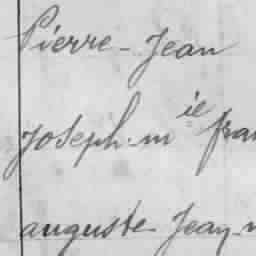 Pierre-Jean
Joseph-mie fran
auguste Jean-